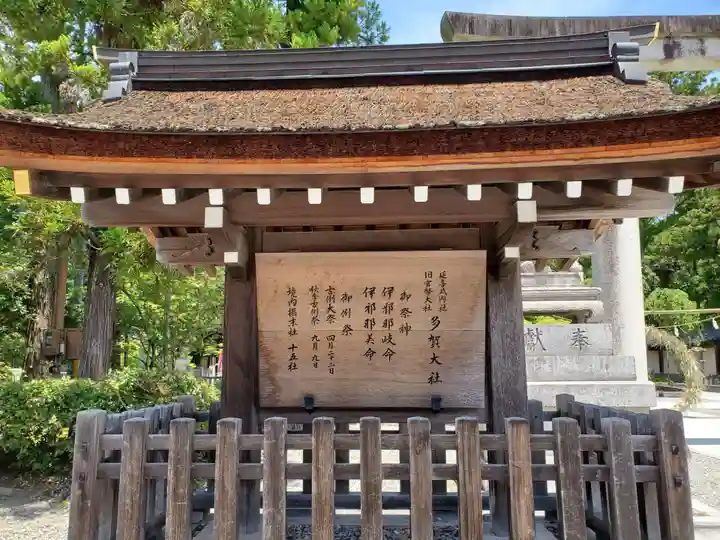 延喜式内社
旧官幣大社
多賀大社
御祭神
伊邪那岐命
伊邪那美命
御例祭
古例大祭 四月二十二日
秋季古例祭 九月九日
境内摂末社 十五社
奉献